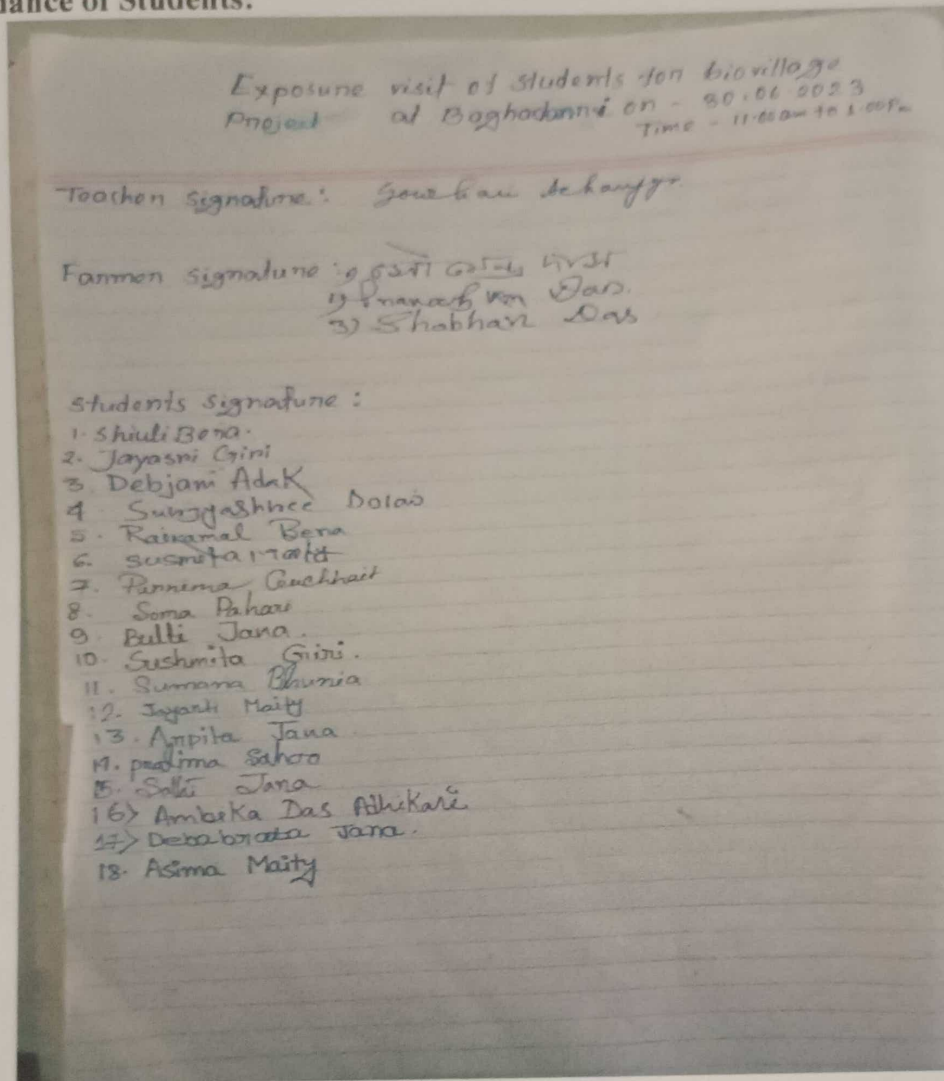 dance of Students:
Exposune visit of students fon biovillage
Pnoject at Baghadanni on - 30.06.2023
Time - 11.00am to
Teachen signatune:
Fanmen signatune:
Das.
3) Shobhan Das
students signatune:
1. Shiuli Bena.
2. Jayasni Gini
3 Debjani Adak
4. Dolai
5. Raikamal Bena
6. susmita Maity
7. Punnima Guchhait
8. Soma Pahari
9. Bulti Jana.
10. Sushmita Giri.
11. Sumana Bhunia
12. Jayanti Maity
13. Anpita Jana
14. pratima Sahoo
15. Jana
16) Ambika Das Adhikari
17) Debabrata Jana.
18. Asima Maity